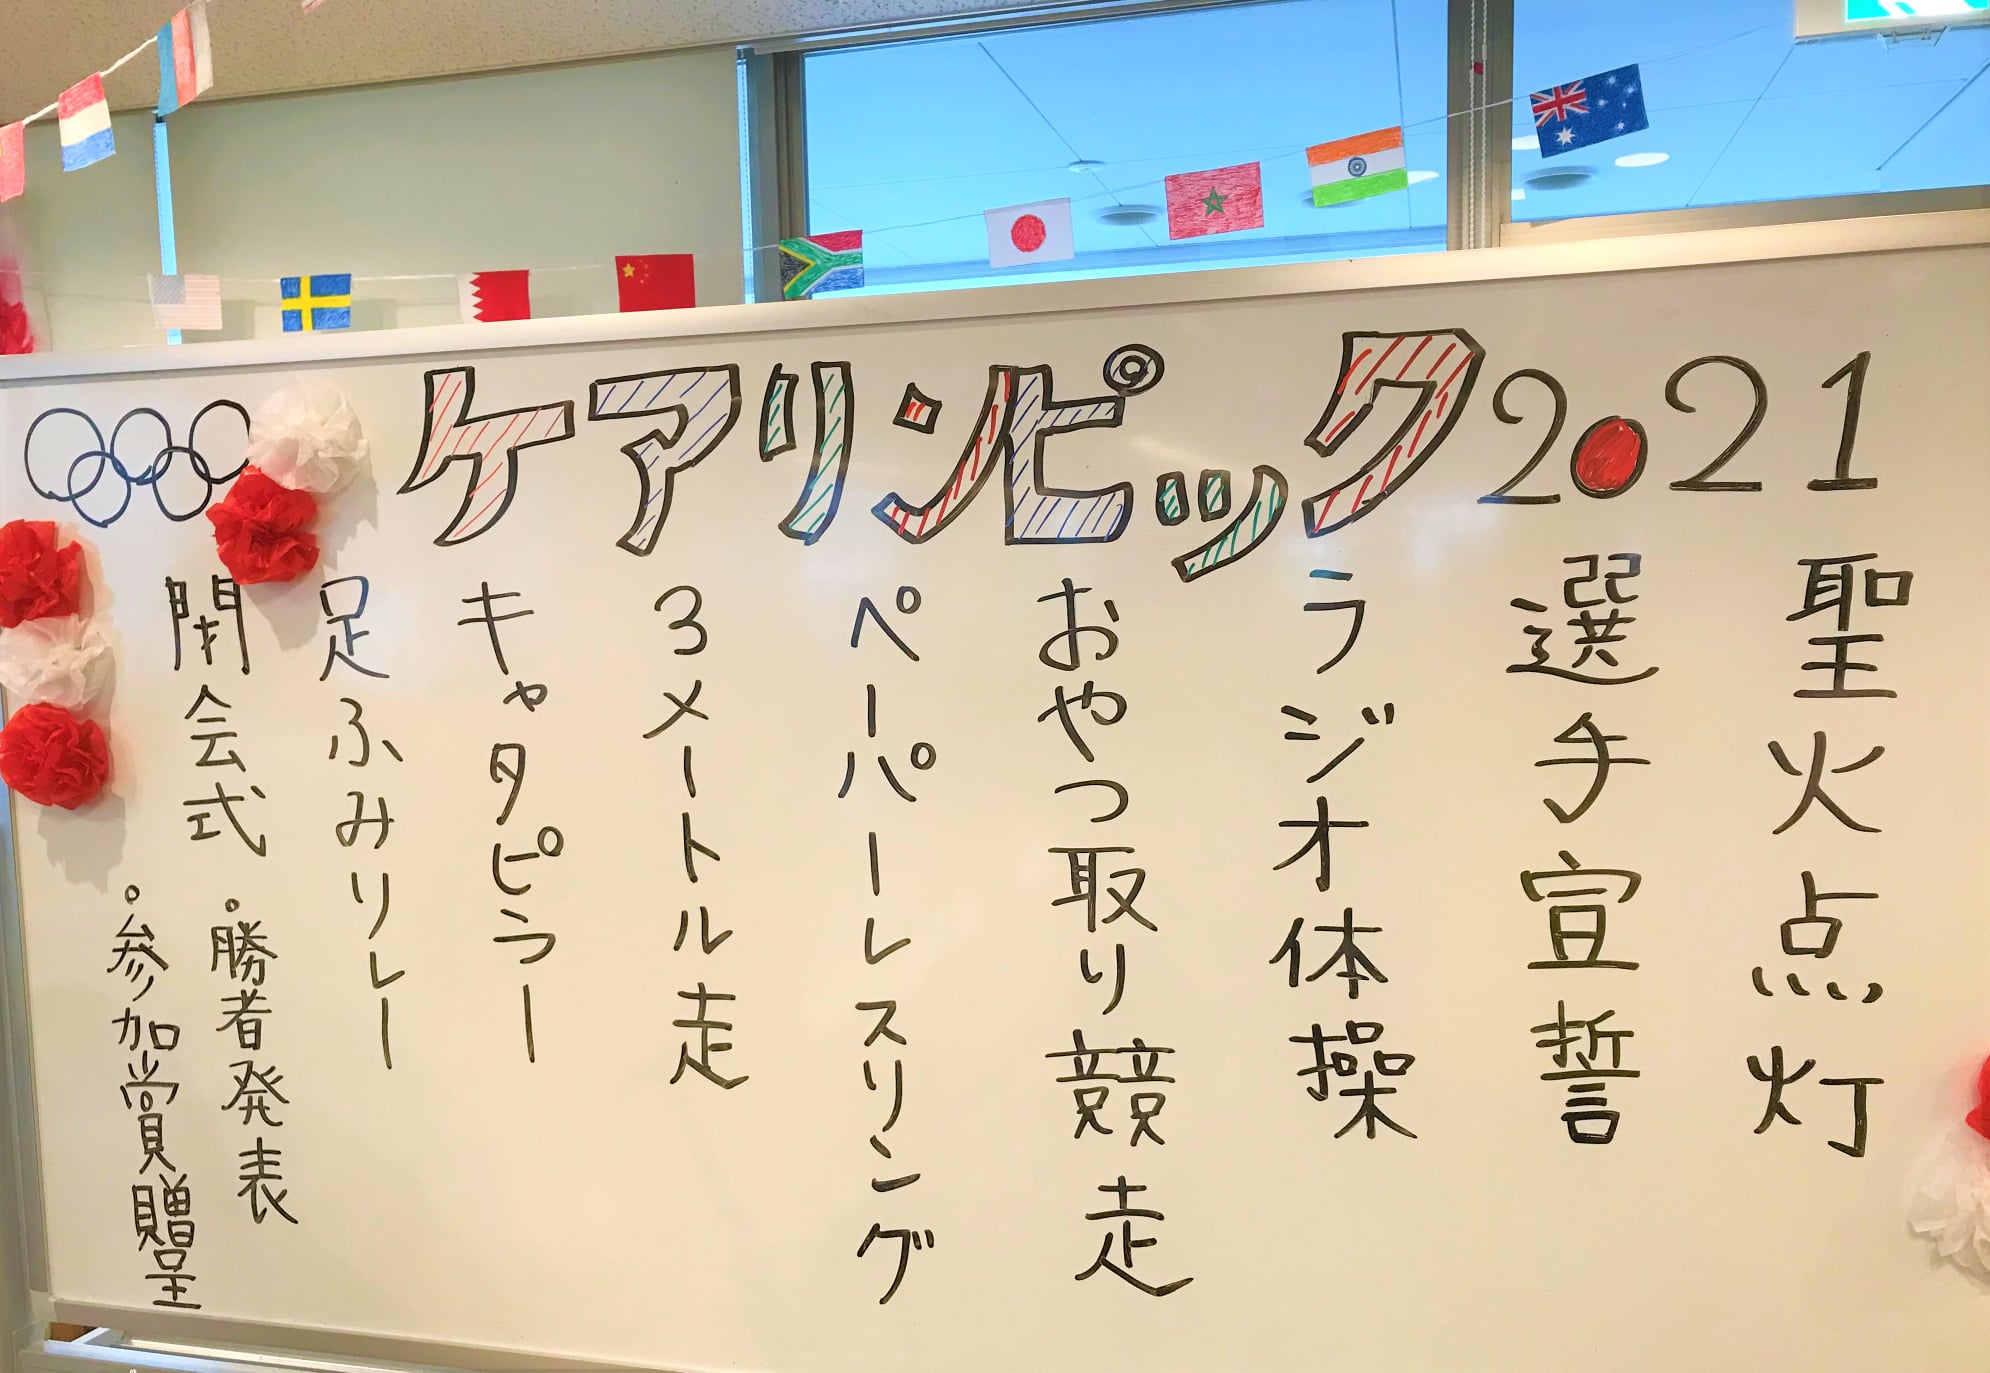 ケアリンピック2021
聖火点灯
選手宣誓
ラジオ体操
おやつ取り競走
ペーパーレスリング
3メートル走
キャタピラー
足ふみリレー
閉会式
・勝者発表
・参加賞贈呈